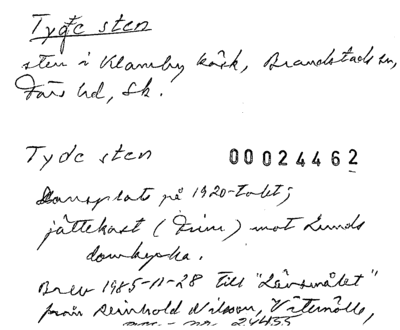 Tyde sten
sten i Klamby kärk, Brandstads sn,
Färs hd, Sk.
Tyde sten 00024462
Dansplats på 1920-talet;
jättekast (Finn) mot Lunds
domkyrka.
Brev 1985-11-28 till "Lärsmålet"
från Reinhold Nilsson, Vitemölle,
24455